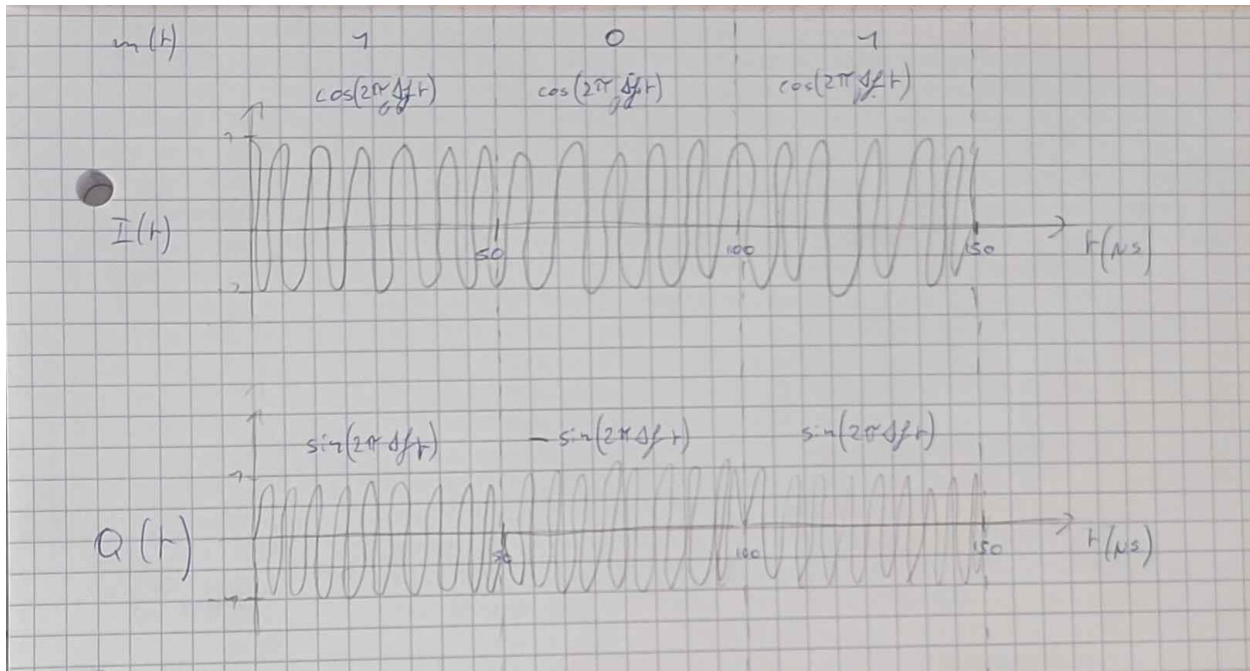 m(t) 1 0 1
cos(2πΔft) cos(2πΔft) cos(2πΔft)
1
I(t) 50 100 150 t(μs)
sin(2πΔft) -sin(2πΔft) sin(2πΔft)
1
Q(t) 50 100 150 t(μs)
-1